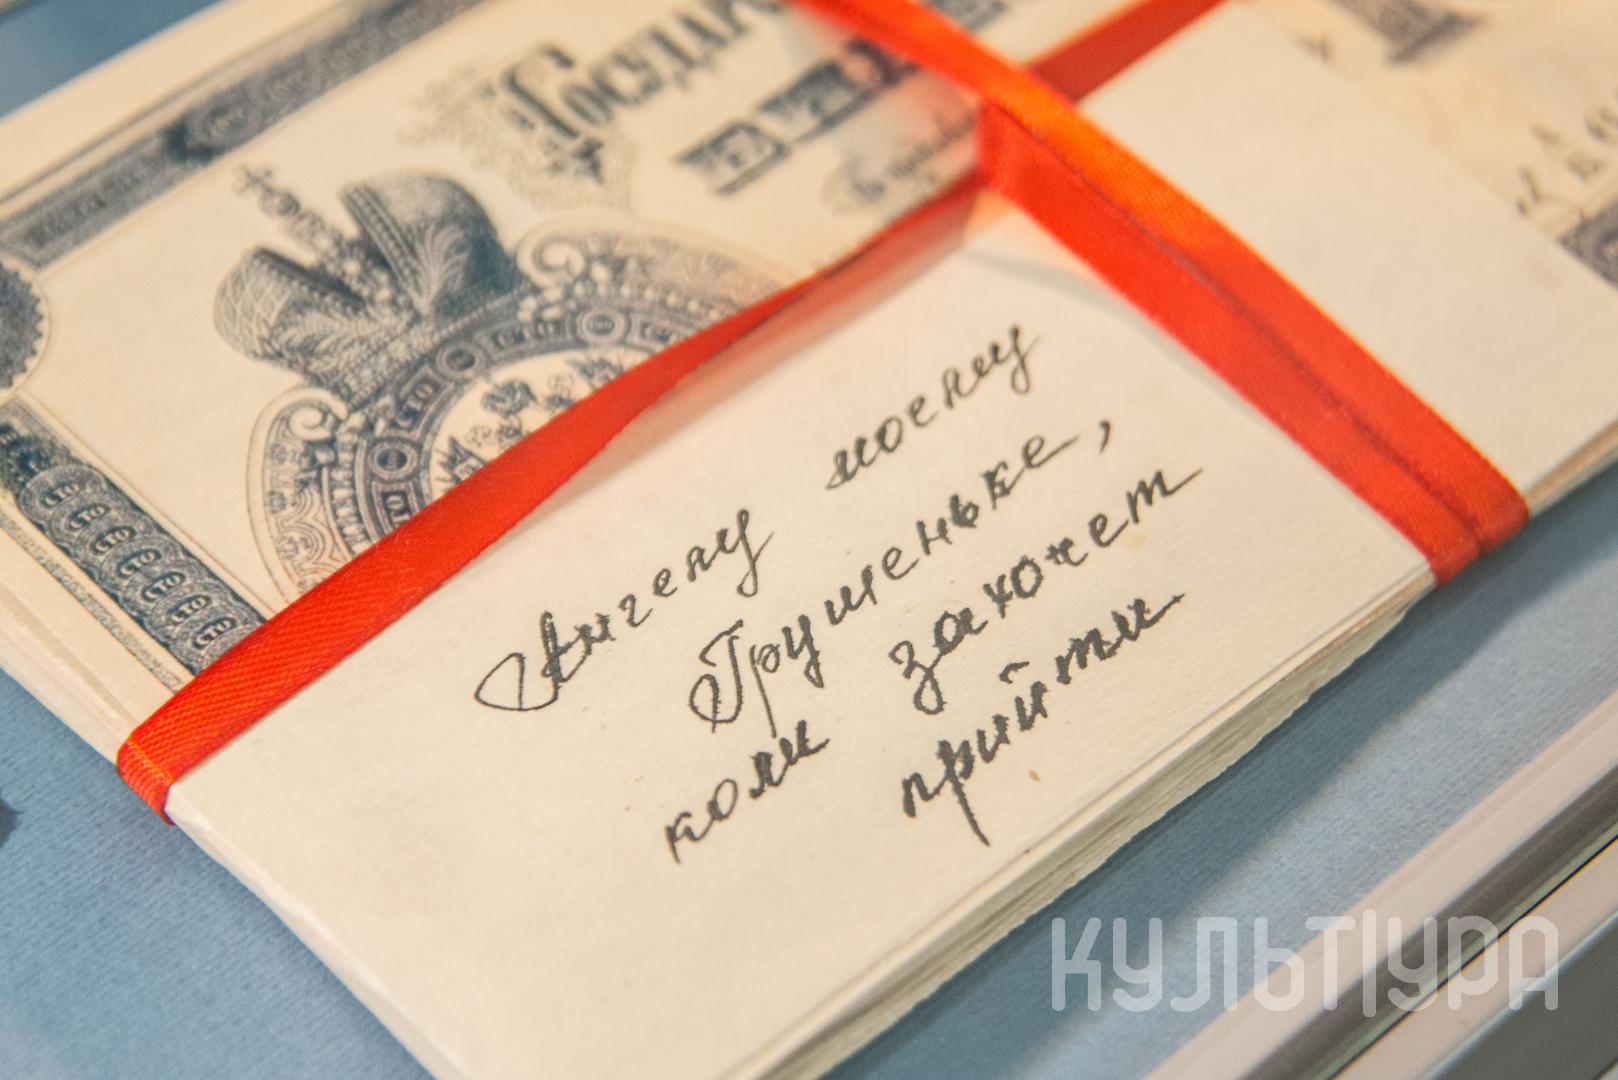 Государ
Ангелу моему
Грушеньке,
коли захочет
прийти.
КУЛЬТУРА